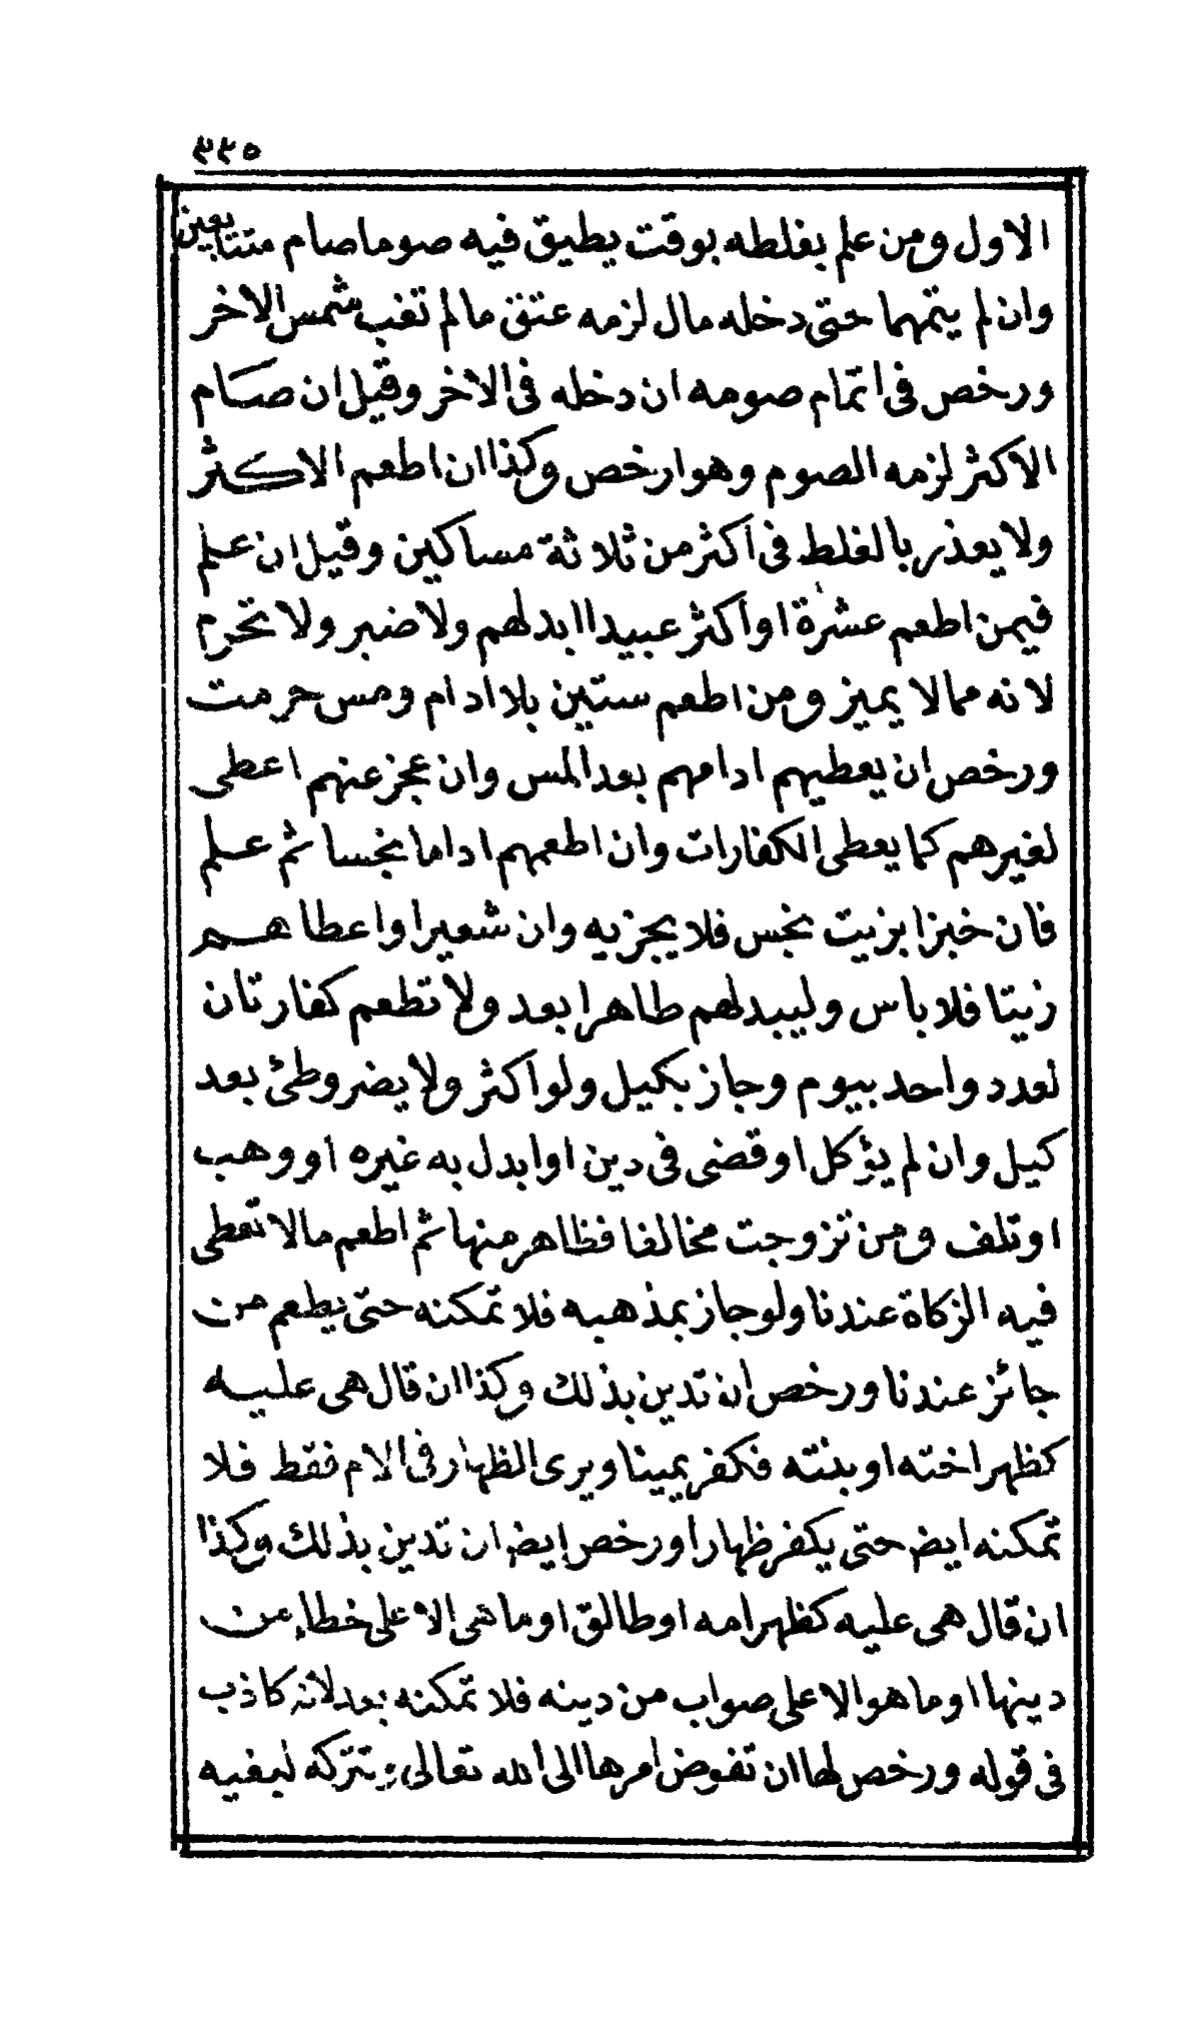 ٣٣٥
الاول ومن علم بغلطه بوقت يطيق فيه صوما صام متتابعين
وان لم يتمهما حتى دخله مال لزمه عتق ما لم تغب شمس الاخر
ورخص فى اتمام صومه ان دخله فى الاخر وقيل ان صام
الاكثر لزمه الصوم وهو ارخص وكذا ان اطعم الاكثر
ولا يعذر بالغلط فى اكثر من ثلاثة مساكين وقيل ان علم
فيمن اطعم عشرة او اكثر عبيدا ابدلهم ولا ضير ولا تحرم
لانه مما لا يميز ومن اطعم ستين بلا ادام ومس حرمت
ورخص ان يعطيهم ادامهم بعد المس وان عجز عنهم اعطى
لغيرهم كما يعطى الكفارات وان اطعمهم اداما نجسا ثم علم
فان خبزا بزيت نجس فلا يجزيه وان شعيرا واعطاهم
زيتا فلا باس وليبدلهم طاهرا بعد ولا تطعم كفارتان
لعدد واحد بيوم وجاز بكيل ولو اكثر ولا يضر وطئ بعد
كيل وان لم يؤكل او قضى فى دين او ابدل به غيره او وهب
او تلف ومن تزوجت مخالفا فظاهر منها ثم اطعم ما لا تعطى
فيه الزكاة عندنا ولو جاز بمذهبه فلا تمكنه حتى يطعم من
جائز عندنا ورخص ان تدين بذلك وكذا ان قال هى عليه
كظهر اخته او بنته فكفر يمينا ويرى الظهار فى الام فقط فلا
تمكنه ايض حتى يكفر ظهارا ورخص ايض ان تدين بذلك وكذا
ان قال هى عليه كظهر امه او طالق او ما هى الا على خطاء من
دينها او ما هو الا على صواب من دينه فلا تمكنه بعد لانه كاذب
فى قوله ورخص لها ان تفوض امرها الى الله تعالى وتتركه ليفيه